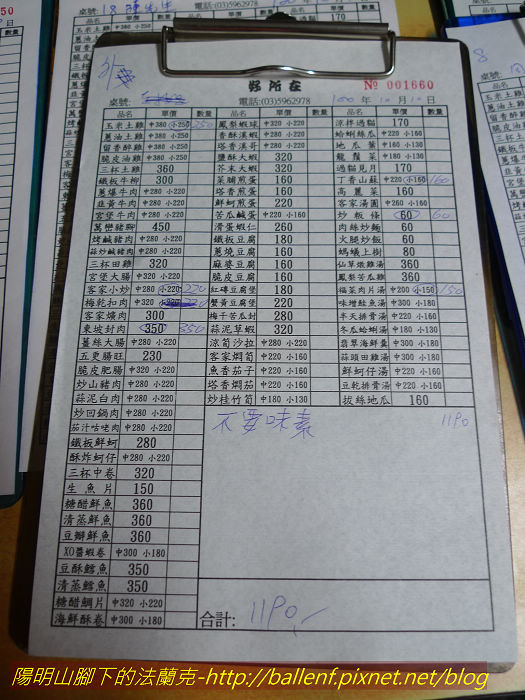 18 陳先生
電話:(03)5962978
外
好所在
№ 001660
桌號:
電話:(03)5962978
100 年 10 月 10 日
品名 單價 數量 品名 單價 數量 品名 單價 數量
玉米土雞 中380 小250 250 鳳梨蝦球 中320 小220 涼拌過貓 170
蔥油土雞 中380 小250 香酥溪蝦 中280 小220 蛤蜊絲瓜 中220 小160
留香醉雞 中380 小250 塔香溪哥 中280 小220 地瓜葉 中160 小130
脆皮油雞 中380 小250 鹽酥大蝦 320 龍鬚菜 中180 小130
三杯土雞 360 芥末大蝦 320 過貓見月 170
鐵板牛柳 300 菜脯煎蛋 160 丁香山蘇 中220 小160 160
蔥爆牛肉 中280 小220 塔香煎蛋 160 高麗菜 160
韭黃牛肉 中280 小220 鮮蚵煎蛋 220 客家湯圓 中260 小160
宮堡牛肉 中280 小220 苦瓜鹹蛋 中220 小160 炒板條 60 60
萬巒豬腳 450 滑蛋蝦仁 260 肉絲炒麵 60
烤鹹豬肉 中280 小220 鐵板豆腐 180 火腿炒飯 60
蒜炒鹹豬肉 中280 小220 蔥燒豆腐 160 螞蟻上樹 80
三杯田雞 320 麻婆豆腐 160 仙草燉雞湯 350
宮堡大腸 中320 小220 脆皮豆腐 160 鳳梨苦瓜雞 350
客家小炒 中280 小220 220 紅磚豆腐堡 180 福菜肉片湯 中200 小150 150
梅乾扣肉 中320 小220 蟹黃豆腐堡 220 味增鮭魚湯 中300 小200
客家爌肉 300 梅干苦瓜封 280 半天排骨湯 中320 小220
東坡封肉 350 350 蒜泥草蝦 320 冬瓜蛤蜊湯 中180 小130
薑絲大腸 中280 小220 涼筍沙拉 中280 小220 翡翠海鮮羹 中300 小180
五更腸旺 230 客家燜筍 中220 小160 蒜頭田雞湯 中300 小180
脆皮肥腸 中320 小220 魚香茄子 中220 小160 鮮蚵仔湯 中220 小160
炒山豬肉 中280 小220 塔香燜茄 中220 小160 豆乾排骨湯 中220 小160
蒜泥白肉 中280 小220 炒桂竹筍 中180 小130 拔絲地瓜 160
炒回鍋肉 中280 小220 不要味素 1190
茄汁咕咾肉 中280 小220
鐵板鮮蚵 280
酥炸蚵仔 中280 小220
三杯中卷 320
生魚片 150
糖醋鮮魚 360
清蒸鮮魚 360
豆瓣鮮魚 360
XO醬蝦卷 中300 小180
豆酥鱈魚 350
清蒸鱈魚 350
糖醋鯛片 中320 小220
海鮮酥卷 中300 小180 合計: 1190,-
陽明山腳下的法蘭克-http://ballenf.pixnet.net/blog